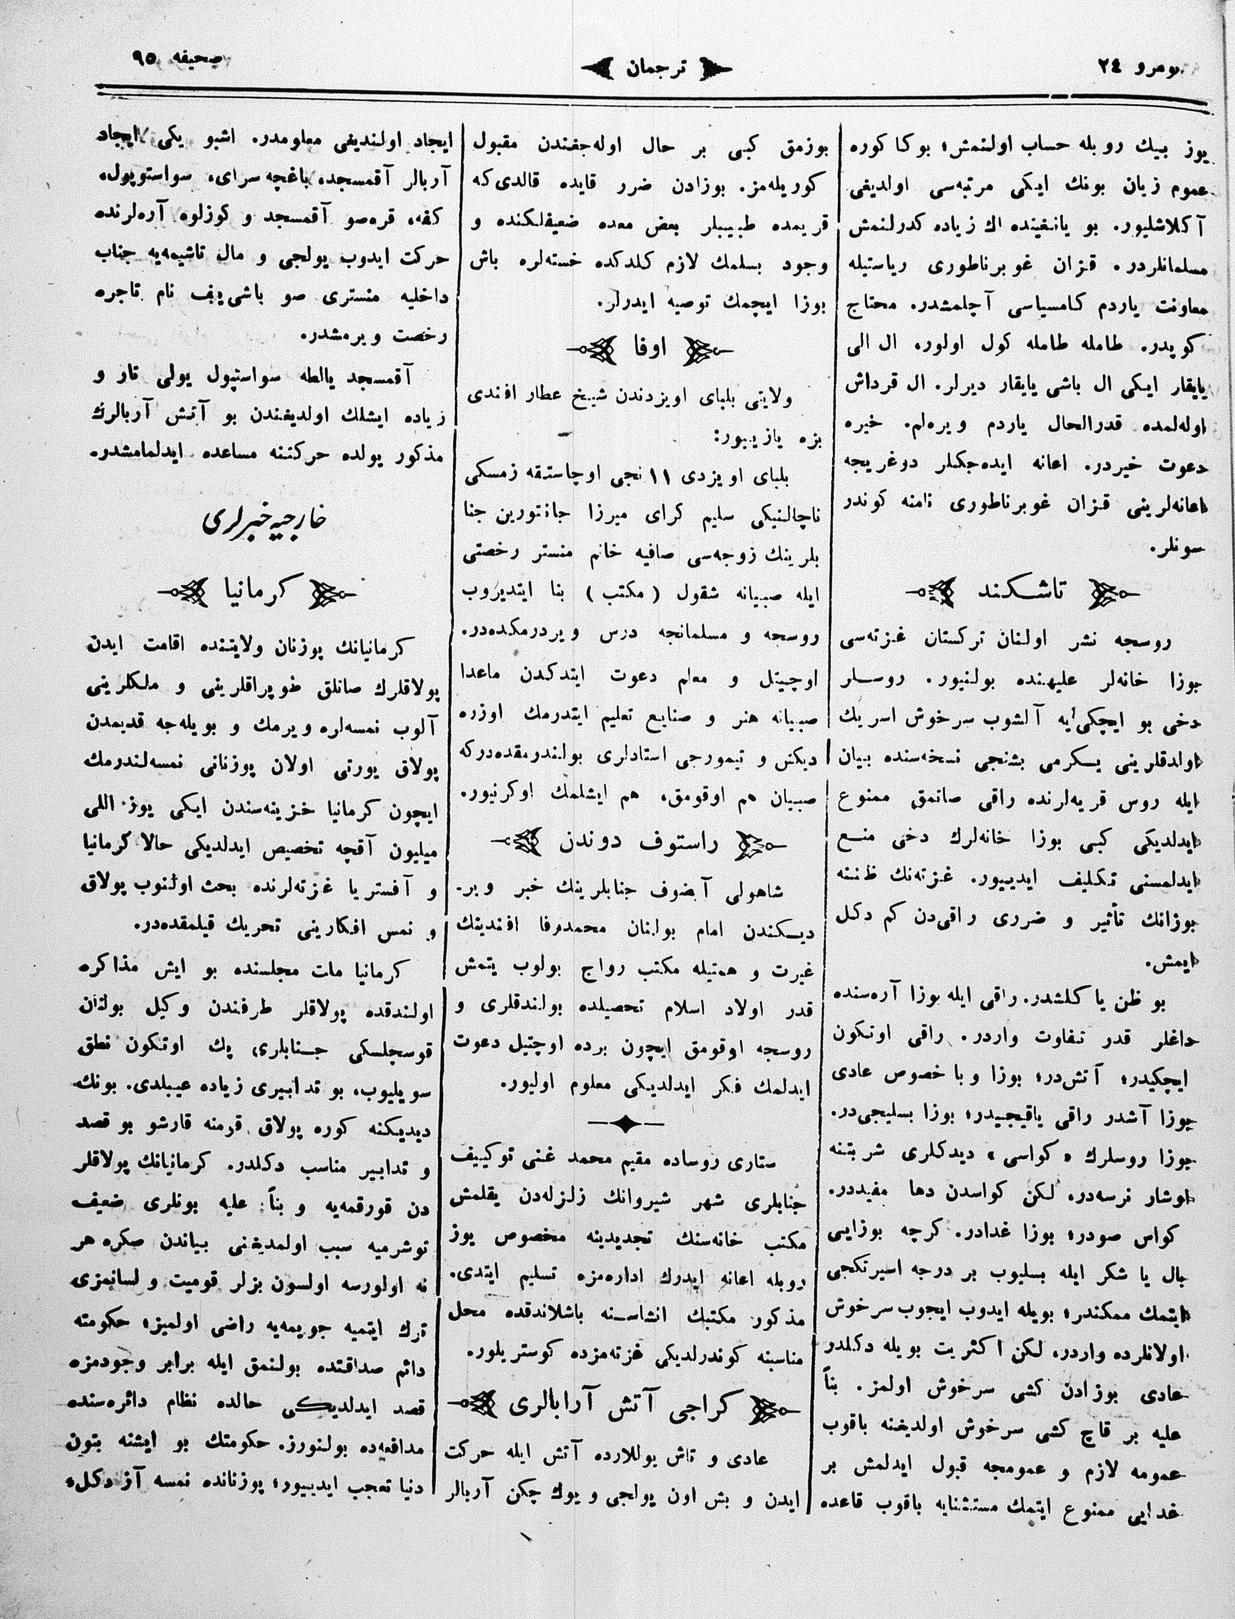 نومرو ٢٤
ترجمان
صحیفه ٩٥
یوز بیك روبله حساب اولنمش؛ بوكا كوره
عموم زیان بونك ایكی مرتبه‌سی اولدیغی
آكلاشلیور. بو یانغینده اك زیاده كدرلنمش
مسلمانلردر. قزان غوبرناطوری ریاستیله
معاونت یاردم كامسیاسی آچلمشدر. محتاج
كوپدر. طامله طامله كول اولور. ال الی
یایقار ایكی ال باشی یایقار دیرلر. ال قرداش
اوله‌لمده قدرالحال یاردم ویره‌لم. خیره
دعوت خیردر. اعانه ایده‌جكلر دوغریجه
اعانه‌لرینی قزان غوبرناطوری نامنه كوندر
سونلر.
تاشكند
روسجه نشر اولنان تركستان غزته‌سی
بوزا خانه‌لر علیهنده بولنیور. روسلر
دخی بو ایچكی‌ایه آلشوب سرخوش اسریك
اولدقلرینی یكرمی بشنجی نسخه‌سنده بیان
ایله روس قریه‌لرنده راقی صاتمق ممنوع
ایدلدیكی كبی بوزا خانه‌لرك دخی منع
ایدلمسنی تكلیف ایدییور. غزته‌نك ظننه
بوزانك تأثیر و ضرری راقی‌دن كم دكل
ایمش.
بو ظن یاكلشدر. راقی ایله بوزا آره‌سنده
داغلر قدر تفاوت واردر. راقی اوتكون
ایچكیدر؛ آتش‌در؛ بوزا وبا خصوص عادی
بوزا آشدر راقی یاقیجیدر؛ بوزا بسلیجی‌در.
بوزا روسلرك «كواسی» دیدكلری شربتنه
اوشار نرسه‌در، لكن كواسدن دها مفیددر.
كواس صودر؛ بوزا غدادر. كرچه بوزایی
بال یا شكر ایله بسلیوب بر درجه اسیرتكجی
ایتمك ممكندر؛ بویله ایدوب ایچوب سرخوش
اولانلرده واردر، لكن اكثریت بویله دكلدر
عادی بوزادن كشی سرخوش اولمز. بناً
علیه بر قاچ كشی سرخوش اولدیغنه باقوب
عمومه لازم و عمومجه قبول ایدلمش بر
غدایی ممنوع ایتمك مستثنایه باقوب قاعده
بوزمق كبی بر حال اوله‌جغندن مقبول
كوریله‌مز. بوزادن ضرر قایده قالدی‌كه
قریمده طبیبلر بعض معده ضعیفلكنده و
وجود بسلمك لازم كلدكده خسته‌لره باش
بوزا ایچمك توصیه ایدرلر.
اوفا
ولایتی بلبای اویزدندن شیخ عطار افندی
بزه یازییور:
بلبای اویزدی ١١نجی اوچاستقه زمسكی
ناچالنیكی سلیم كرای میرزا جانتورین جنا
بلرینك زوجه‌سی صافیه خانم منستر رخصتی
ایله صبیانه شقول (مكتب) بنا ایتدیروب
روسجه و مسلمانجه درس ویردرمكده‌در.
اوچیتل و معلم دعوت ایتدكدن ماعدا
صبیانه هنر و صنایع تعلیم ایتدرمك اوزره
دیكش و تیمورجی استادلری بولندرمقده‌در كه
صبیان هم اوقومق، هم ایشلمك اوكرنیور.
راستوف دوندن
شاهولی آبضوف جنابلرینك خبر ویر-
دیكندن امام بولنان محمدوفا افندینك
غیرت و همتیله مكتب رواج بولوب یتمش
قدر اولاد اسلام تحصیلده بولندقلری و
روسجه اوقومق ایچون برده اوچتیل دعوت
ایدلمك فكر ایدلدیكی معلوم اولیور.
ستاری روساده مقیم محمد غنی توكییف
جنابلری شهر شیروانك زلزله‌دن یقلمش
مكتب خانه‌سنك تجدیدینه مخصوص یوز
روبله اعانه ایدرك اداره‌مزه تسلیم ایتدی.
مذكور مكتبك انشاسنه باشلاندقده محل
مناسبنه كوندرلدیكی غزته‌مزده كوستریلور.
كراجی آتش آرابالری
عادی و تاش یوللارده آتش ایله حركت
ایدن و بش اون یولجی و یوك چكن آربالر
ایجاد اولندیغی معلومدر. اشبو یكی ایجاد
آربالر آقمسجد، باغچه سرای، سواستوپول،
كفه، قره‌صو آقمسجد و كوزلوه آره‌لرنده
حركت ایدوب یولجی و مال تاشیمه‌یه جناب
داخلیه منستری صو باشی‌یف نام تاجره
رخصت ویرمشدر.
آقمسجد یالطه سواستپول یولی تار و
زیاده ایشلك اولدیغندن بو آتش آربالرك
مذكور یولده حركتنه مساعده ایدلمامشدر.
خارجیه خبرلری
كرمانیا
كرمانیانك پوزنان ولایتنده اقامت ایدن
پولاقلرك صاتلق طوپراقلرینی و ملكلرینی
آلوب نمسه‌لره ویرمك و بویله‌جه قدیمدن
پولاق یورتی اولان پوزنانی نمسه‌لندرمك
ایچون كرمانیا خزینه‌سندن ایكی یوز اللی
میلیون آقچه تخصیص ایدلدیكی حالا كرمانیا
و آفستریا غزته‌لرنده بحث اولنوب پولاق
و نمس افكارینی تحریك قیلمقده‌در.
كرمانیا مات مجلسنده بو ایش مذاكره
اولندقده پولاقلر طرفندن وكیل بولنان
قوسچلسكی جنابلری پك اوتكون نطق
سویلیوب، بو تدابیری زیاده عیبلدی. بونك
دیدیكنه كوره پولاق قرمنه قارشو بو قصد
و تدابیر مناسب دكلدر. كرمانیانك پولاقلر
دن قورقمه‌یه و بناً علیه بونلری ضعیف
توشرمیه سبب اولمدیغنی بیاندن صكره هر
نه اولورسه اولسون بزلر قومیت و لسانمزی
ترك ایتمیه جویمه‌یه راضی اولمیز؛ حكومته
دائم صداقتده بولنمق ایله برابر وجودمزه
قصد ایدلدیكی حالده نظام دائره‌سنده
مدافعه‌ده بولنورز. حكومتك بو ایشنه بتون
دنیا تعجب ایدییور؛ پوزنانده نمسه آز دكل،